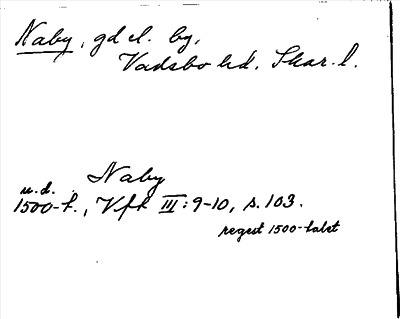 Naby, gd el. by,
Vadsbo hd, Skar. l.
Naby
u.d.
1500-t., Vfk III: 9-10, s. 103.
regest 1500-talet